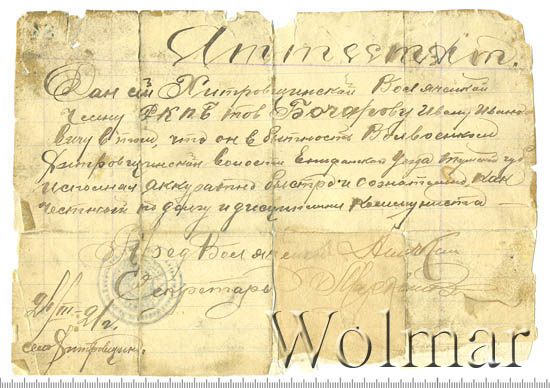 Аттестат.
Дан сей Хитровщинской Волячейкой
члену РКПБ тов Бочарову Ивану Ивано
вичу в том, что он в бытность Вол
Хитровщинской волости уезда
исполнял аккуратно быстро и сознательно, как
честный по долгу и дисциплине коммуниста
Пред
Секретарь
26/III-21г.
село Хитровщин.
Wolmar